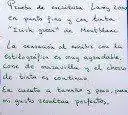 Prueba de escritura Lamy 2000
en punto fino y con tinta
"Irish green" de Montblanc
La sensación al escribir con la
estilográfica es muy agradable,
corre de maravilla y el chorro
de tinta es continuo.
En cuanto a tamaño y peso, para
mi gusto resultan perfectos,